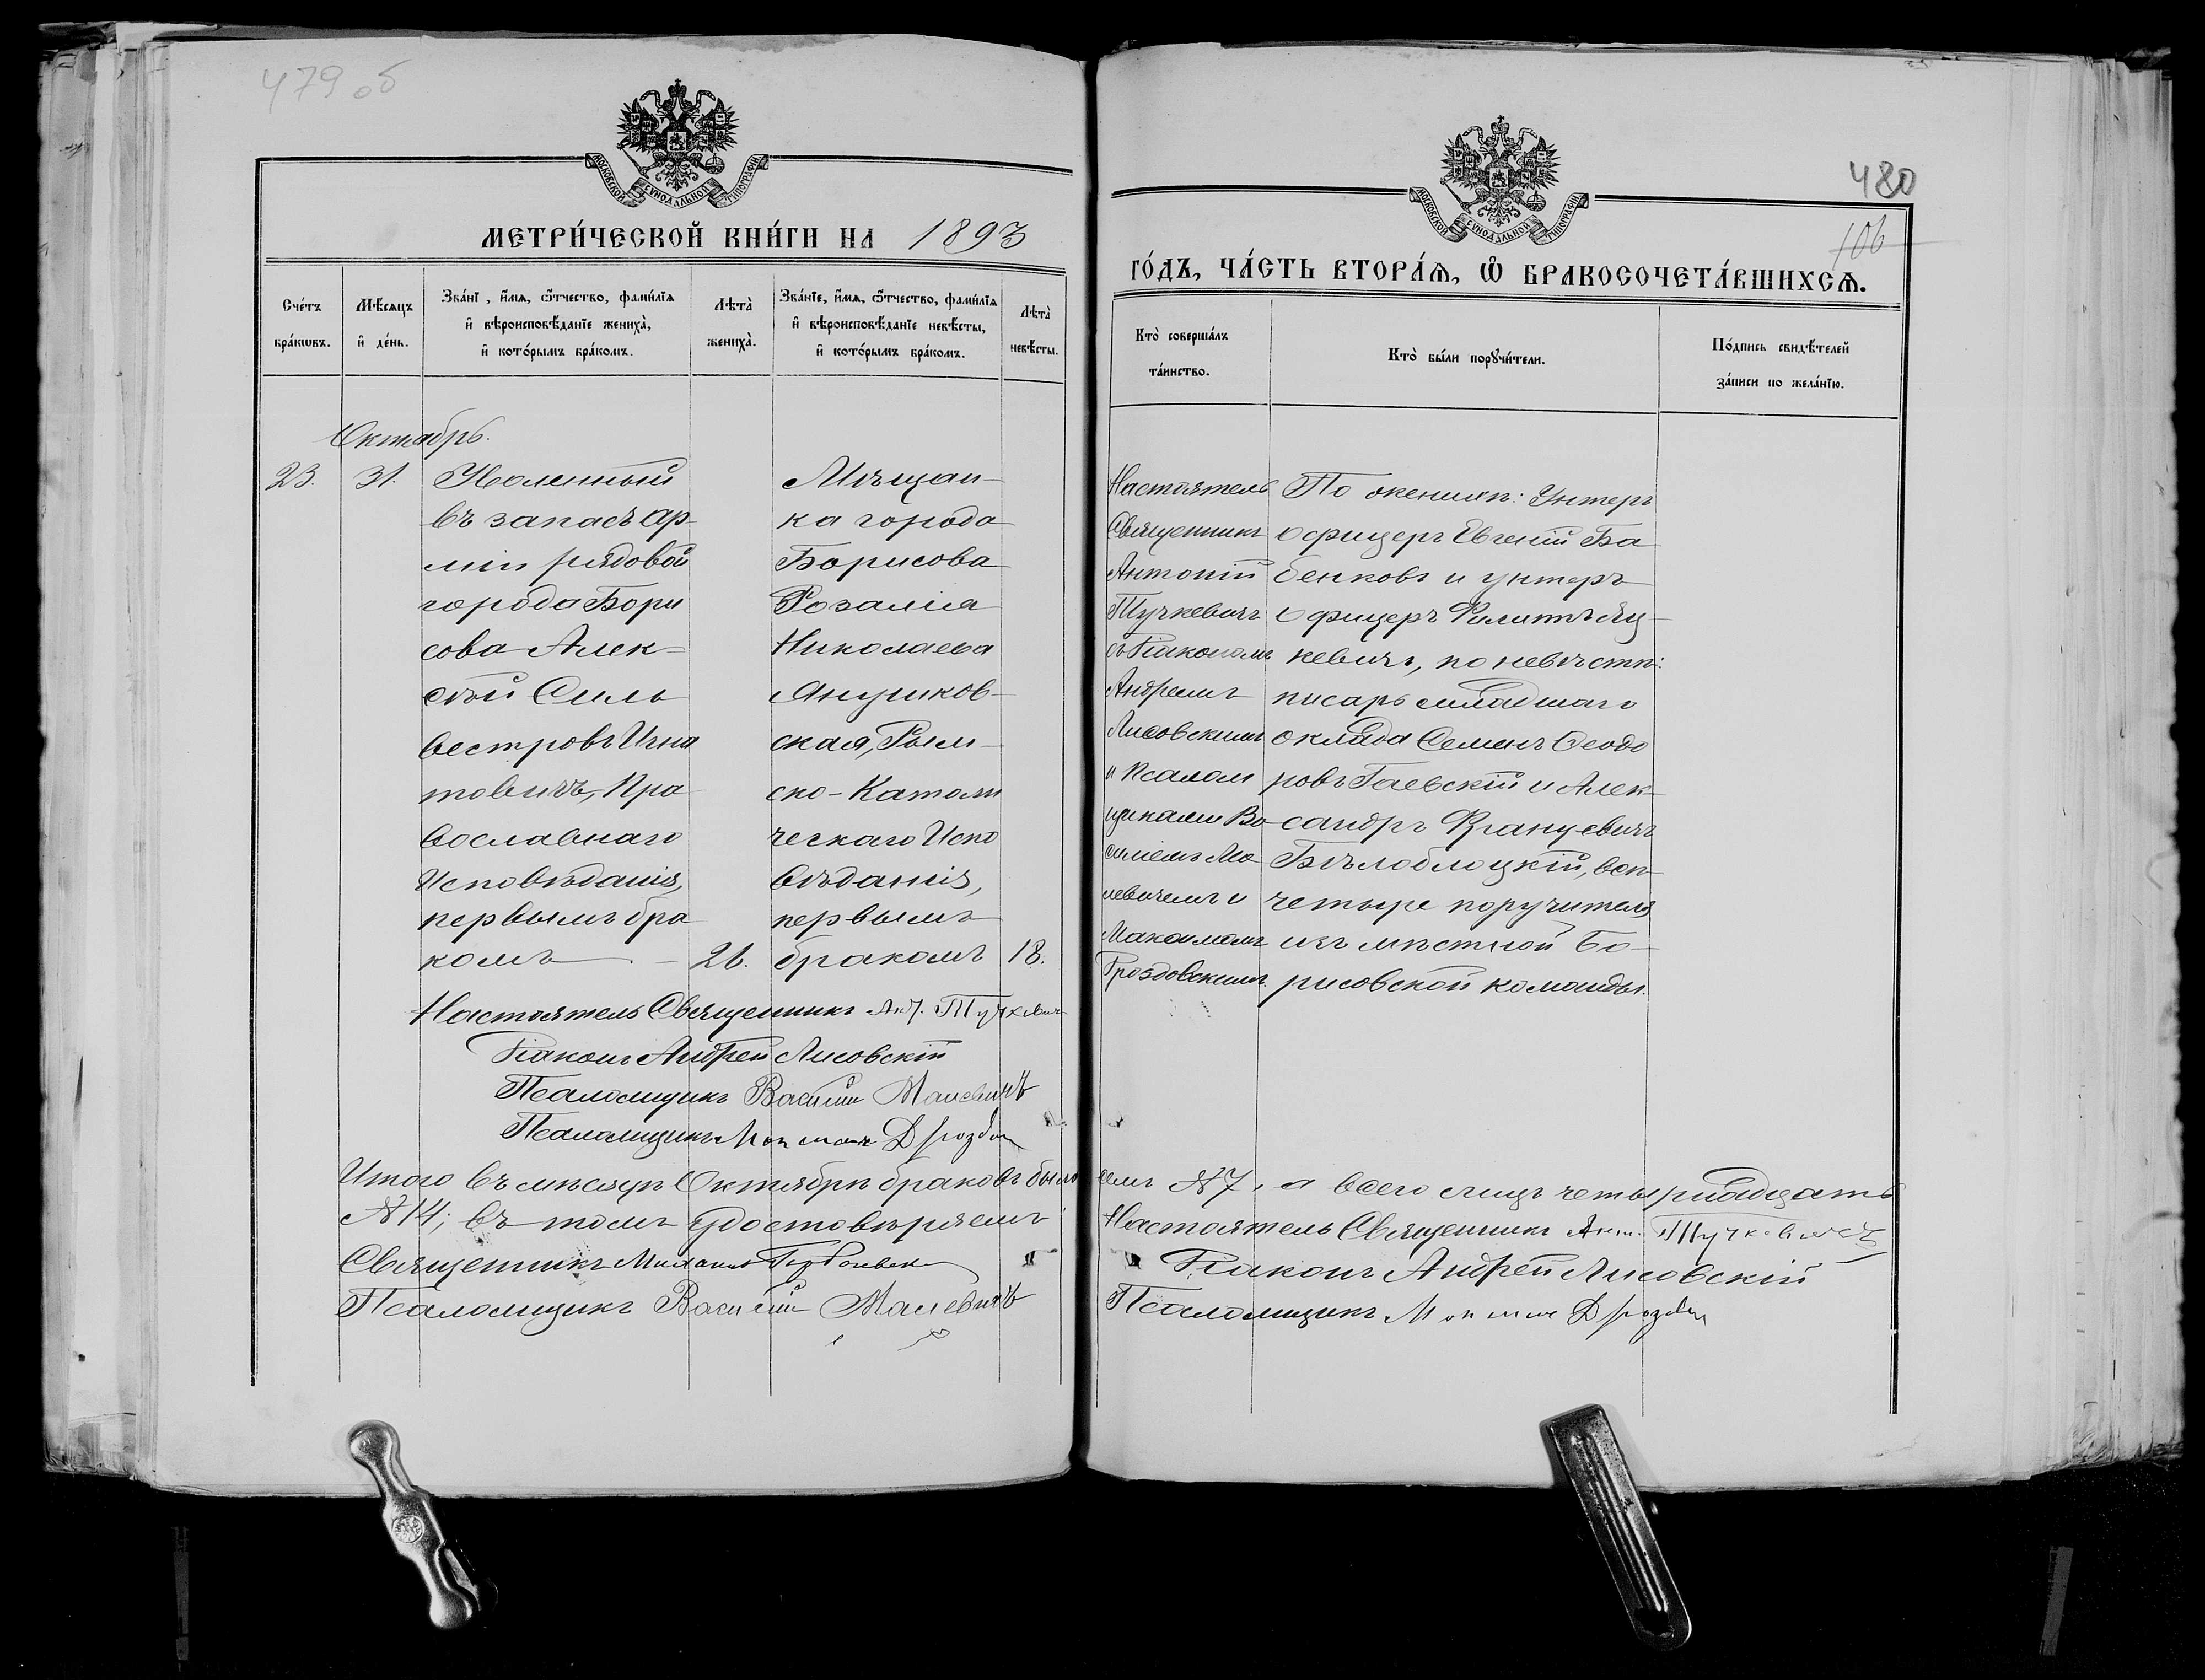 479 об
МОСКОВСКОЙ СѴНОДАЛЬНОЙ ТИПОГРАФІИ
МЕТРИ́ЧЕСКОЙ КНИ́ГИ НА 1893
Сче́тъ бра́кѡвъ.
Мѣ́сяцъ и҆ де́нь.
Зва́нї , и҆́мѧ, ѻ҆́тчество, фами́лїѧ
и҆ вѣроисповѣ́данїе женихà,
и҆ кото́рымъ бра́комъ.
Лѣтà женихà.
Зва́нїе, и҆́мѧ, ѻ҆́тчество, фами́лїѧ
и҆ вѣроисповѣ́данїе невѣ́сты,
и҆ кото́рымъ бра́комъ.
Лѣтà невѣ́сты.
Октябрь.
23.
31.
Уволенный
въ запасъ ар-
міи рядовой
города Бори
сова Алек-
сѣй Силь
вестровъ Игна
товичъ, Пра
вославнаго
Исповѣданія,
первымъ бра
комъ
26.
Мѣщан-
ка города
Борисова
Розалія
Николаева
Янушков-
ская, Рим-
ско-Католи
ческаго Испо
вѣданія,
первымъ
бракомъ
18.
Настоятель Священникъ Ант. Тучкевичъ
Діаконъ Андрей Лисовскій
Псаломщикъ Василій Малевичъ
Псаломщикъ
Итого въ мѣсяцѣ Октябрѣ браковъ было
№ 14; въ томъ удостовѣряемъ
Священникъ Михаилъ
Псаломщикъ Василій Малевичъ
480
106
МОСКОВСКОЙ СѴНОДАЛЬНОЙ ТИПОГРАФІИ
ГО́ДЪ, ЧА́СТЬ ВТОРА́Ѧ, Ѽ БРАКОСОЧЕТА́ВШИХСѦ.
Ктò соверша́лъ
та́инство.
Ктò бы́ли порꙋчи́тели.
По́дпись свидѣ́телей
за́писи по жела́нїю.
Настоятель
Священникъ
Антоній
Тучкевичъ
съ Діакономъ
Андреемъ
Лисовскимъ
и Псалом
щиками Ва
силіемъ Ма
левичемъ и
Дроздовскимъ.
По женихѣ: Унтеръ
офицеръ Евгеній Ба
бенковъ и унтеръ
офицеръ Филиппъ Яц-
кевичъ, по невѣстѣ:
писарь младшаго
оклада Семенъ Ѳеодо
ровъ Гаевскій и Алек-
сандръ Францевичъ
Бѣлоблоцкій, всѣ
четыре поручителя
изъ мѣстной Бо-
рисовской команды.
семь № 7, а всего лицъ четырнадцать
Настоятель Священникъ Ант. Тучкевичъ
Діаконъ Андрей Лисовскій
Псаломщикъ